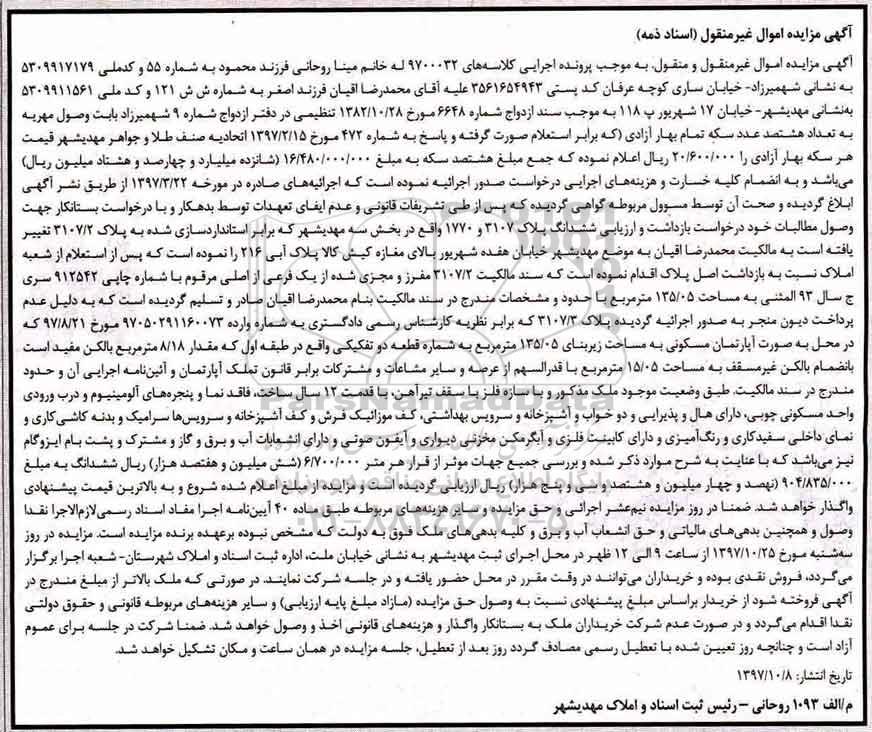 آگهی مزایده اموال غیرمنقول (اسناد ذمه)
آگهی مزایده اموال غیرمنقول و منقول. به موجب پرونده اجرایی کلاسه‌های ۹۷۰۰۰۳۲ له خانم مینا روحانی فرزند محمود به شماره ۵۵ و کدملی ۵۳۰۹۹۱۷۱۷۹
به نشانی شهمیرزاد- خیابان ساری کوچه عرفان کد پستی ۳۵۶۱۶۵۴۹۴۳ علیه آقای محمدرضا اقیان فرزند اصغر به شماره ش ش ۱۲۱ و کد ملی ۵۳۰۹۹۱۱۵۶۱
به‌نشانی مهدیشهر- خیابان ۱۷ شهریور پ ۱۱۸ به موجب سند ازدواج شماره ۶۶۴۸ مورخ ۱۳۸۲/۱۰/۲۸ تنظیمی در دفتر ازدواج شماره ۹ شهمیرزاد بابت وصول مهریه
به تعداد هشتصد عدد سکه تمام بهار آزادی (که برابر استعلام صورت گرفته و پاسخ به شماره ۴۷۲ مورخ ۱۳۹۷/۲/۱۵ اتحادیه صنف طلا و جواهر مهدیشهر قیمت
هر سکه بهار آزادی را ۲۰/۶۰۰/۰۰۰ ریال اعلام نموده که جمع مبلغ هشتصد سکه به مبلغ ۱۶/۴۸۰/۰۰۰/۰۰۰ (شانزده میلیارد و چهارصد و هشتاد میلیون ریال)
می‌باشد و به انضمام کلیه خسارت و هزینه‌های اجرایی درخواست صدور اجرائیه نموده است که اجرائیه‌های صادره در مورخه ۱۳۹۷/۳/۲۲ از طریق نشر آگهی
ابلاغ گردیده و صحت آن توسط مسوول مربوطه گواهی گردیده که پس از طی تشریفات قانونی و عدم ایفای تعهدات توسط بدهکار و با درخواست بستانکار جهت
وصول مطالبات خود درخواست بازداشت و ارزیابی ششدانگ پلاک ۳۱۰۷ و ۱۷۷۰ واقع در بخش سه مهدیشهر که برابر استانداردسازی شده به پلاک ۳۱۰۷/۲ تغییر
یافته است به مالکیت محمدرضا اقیان به موضع مهدیشهر خیابان هفده شهریور بالای مغازه کیش کالا پلاک آبی ۲۱۶ را نموده است که پس از استعلام از شعبه
املاک نسبت به بازداشت اصل پلاک اقدام نموده است که سند مالکیت ۳۱۰۷/۲ مفرز و مجزی شده از یک فرعی از اصلی مرقوم با شماره چاپی ۹۱۲۵۴۲ سری
ج سال ۹۳ المثنی به مساحت ۱۳۵/۰۵ مترمربع با حدود و مشخصات مندرج در سند مالکیت بنام محمدرضا اقیان صادر و تسلیم گردیده است که به دلیل عدم
پرداخت دیون منجر به صدور اجرائیه گردیده پلاک ۳۱۰۷/۳ که برابر نظریه کارشناس رسمی دادگستری به شماره وارده ۹۷۰۵۰۲۹۱۱۶۰۰۷۳ مورخ ۹۷/۸/۲۱ که
در محل به صورت آپارتمان مسکونی به مساحت زیربنای ۱۳۵/۰۵ مترمربع به شماره قطعه دو تفکیکی واقع در طبقه اول که مقدار ۸/۱۸ مترمربع بالکن مفید است
بانضمام بالکن غیرمسقف به مساحت ۱۵/۰۵ مترمربع با قدرالسهم از عرصه و سایر مشاعات و مشترکات برابر قانون تملک آپارتمان و آئین‌نامه اجرایی آن و حدود
مندرج در سند مالکیت. طبق وضعیت موجود ملک مذکور و با سازه فلز با سقف تیرآهن، با قدمت ۱۲ سال ساخت، فاقد نما و پنجره‌های آلومینیوم و درب ورودی
واحد مسکونی چوبی، دارای هال و پذیرایی و دو خواب و آشپزخانه و سرویس بهداشتی، کف موزائیک فرش و کف آشپزخانه و سرویس‌ها سرامیک و بدنه کاشی کاری و
نمای داخلی سفیدکاری و رنگ‌آمیزی و دارای کابینت فلزی و آبگرمکن مخزنی دیواری و آیفون صوتی و دارای انشعابات آب و برق و گاز و مشترک و پشت بام ایزوگام
نیز می‌باشد که با عنایت به شرح موارد ذکر شده و بررسی جمیع جهات موثر از قرار هر متر ۶/۷۰۰/۰۰۰ (شش میلیون و هفتصد هزار) ریال ششدانگ به مبلغ
۹۰۴/۸۳۵/۰۰۰ (نهصد و چهار میلیون و هشتصد و سی و پنج هزار) ریال ارزیابی گردیده است و مزایده از مبلغ اعلام شده شروع و به بالاترین قیمت پیشنهادی
واگذار خواهد شد. ضمنا در روز مزایده نیم‌عشر اجرائی و حق مزایده و سایر هزینه‌های مربوطه طبق ماده ۴۰ آیین‌نامه اجرا مفاد اسناد رسمی‌لازم‌الاجرا نقدا
وصول و همچنین بدهی‌های مالیاتی و حق انشعاب آب و برق و کلیه بدهی‌های ملک فوق به دولت که مشخص نبوده برعهده برنده مزایده است. مزایده در روز
سه‌شنبه مورخ ۱۳۹۷/۱۰/۲۵ از ساعت ۹ الی ۱۲ ظهر در محل اجرای ثبت مهدیشهر به نشانی خیابان ملت، اداره ثبت اسناد و املاک شهرستان- شعبه اجرا برگزار
می‌گردد، فروش نقدی بوده و خریداران می‌توانند در وقت مقرر در محل حضور یافته و در جلسه شرکت نمایند. در صورتی که ملک بالاتر از مبلغ مندرج در
آگهی فروخته شود از خریدار براساس مبلغ پیشنهادی نسبت به وصول حق مزایده (مازاد مبلغ پایه ارزیابی) و سایر هزینه‌های مربوطه قانونی و حقوق دولتی
نقدا اقدام می‌گردد و در صورت عدم شرکت خریداران ملک به بستانکار واگذار و هزینه‌های قانونی اخذ و وصول خواهد شد. ضمنا شرکت در جلسه برای عموم
آزاد است و چنانچه روز تعیین شده با تعطیل رسمی مصادف گردد روز بعد از تعطیل، جلسه مزایده در همان ساعت و مکان تشکیل خواهد شد.
تاریخ انتشار: ۱۳۹۷/۱۰/۸
م/الف ۱۰۹۳ روحانی – رئیس ثبت اسناد و املاک مهدیشهر